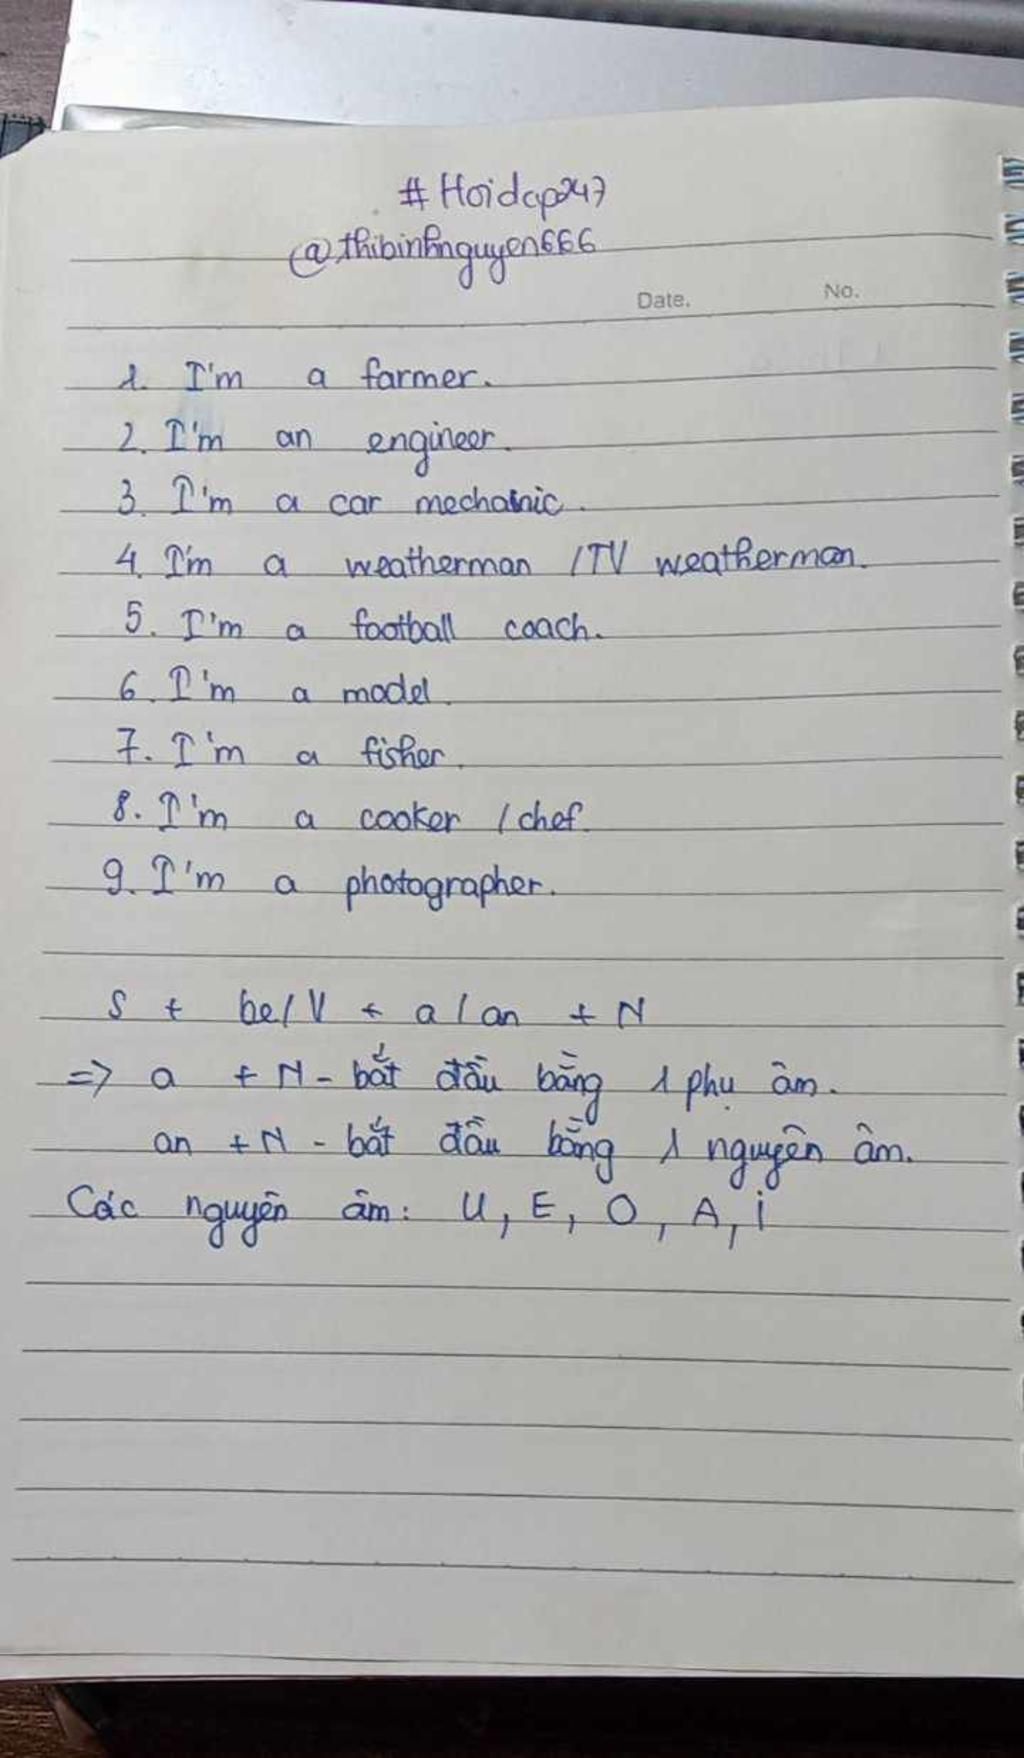 # Hoidap247
@thibinhnguyen666
Date. No.
1. I'm a farmer.
2. I'm an engineer.
3. I'm a car mechanic.
4. I'm a weatherman / TV weatherman.
5. I'm a football coach.
6. I'm a model.
7. I'm a fisher.
8. I'm a cooker / chef.
9. I'm a photographer.
S + be/V + a/an + N
=> a + N - bắt đầu bằng 1 phụ âm.
an + N - bắt đầu bằng 1 nguyên âm.
Các nguyên âm: U, E, O, A, i